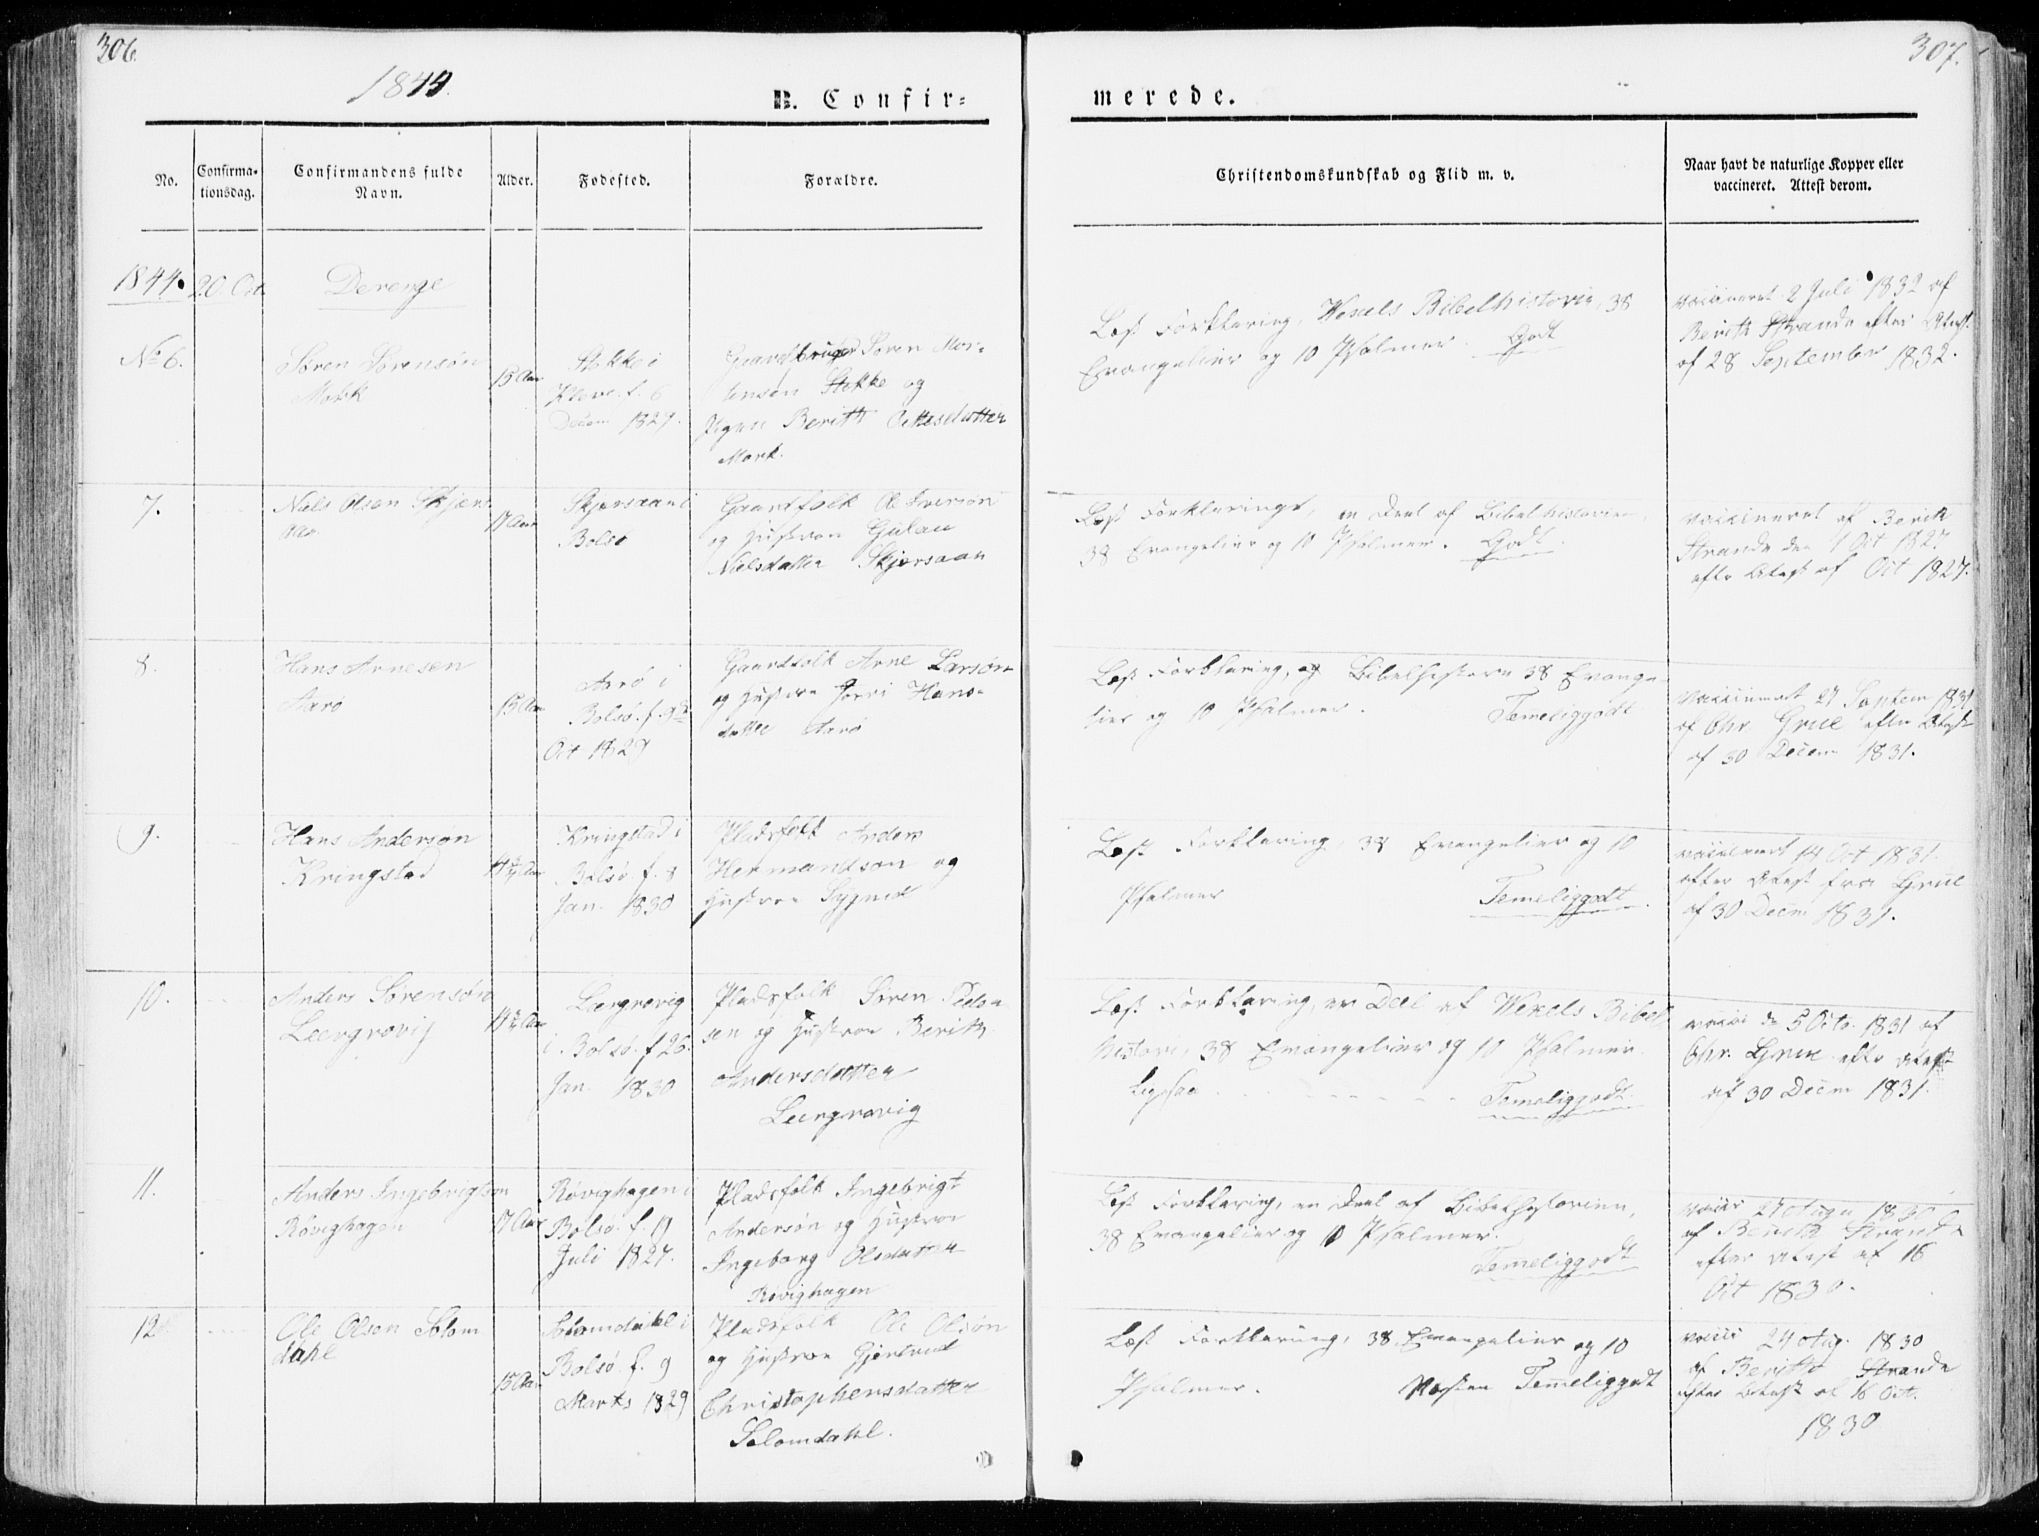 306.
307.
1844.
B. Confir=
merede.
No.
Confirma-
tionsdag.
Confirmandens fulde
Navn.
Alder.
Fødested.
Forældre.
Christendomskundskab og Flid m. v.
Naar havt de naturlige Kopper eller
vaccineret. Attest derom.
1844. 20. Oct.
Derenge
No 6.
Søren Sørensøn
Mork
15 Aar
Stokke i
f. 6
Decem 1829.
Gaardbruger Søren Mor-
tensen Stokke og
Pigen Berith Ottesdatter
Mork.
Læst Forklaring, Wexels Bibelhistorie, 38
Evangelier og 10 Psalmer. Godt
vaccineret 2 Juli 1832 af
Berith Strande efter Attest
af 28 September 1832.
7.
Niels Olsen Skjørs
aan
17 Aar
Skjørsaan i
Bolsø
Gaardfolk Ole Iversøn
og Hustroe Gulau
Nielsdatter Skjørsaan
Læst Forklaringe, en Deel af Bibelhistorien,
38 Evangelier og 10 Psalmer. Godt.
vaccineret af Berith
Strande den 1 Oct 1827
efter Attest af Oct 1827.
8.
Hans Arnesen
Aarø
15 Aar
Aarø i
Bolsø. f. 9de
Oct 1829
Gaardfolk Arne Larsøn
og Hustroe Hans-
datter Aarø
Læst Forklaring, og Bibelhistorie 38 Evange-
lier og 10 Psalmer. Temeliggodt
vaccineret 27 Septem 1831
af Chr. Grue efter Attest
af 30 Decem 1831.
9.
Hans Andersøn
Kringstad
Kringstad i
Bolsø. f. 8
Jan. 1830
Pladsfolk Anders
Hermandsøn og
Hustroe Sygned
Læst Forklaring, 38 Evangelier og 10
Psalmer Temeliggodt.
vaccineret 14 Oct 1831.
efter Attest fra Grue
af 30 Decm 1831.
10.
Anders Sørensøn
Leergrovig
Leergrovig
i Bolsø. f 26.
Jan. 1830
Pladsfolk Søren Peder
sen og Hustroe Berith
Andersdatter
Leergrovig
Læst Forklaring, en Deel af Wexels Bibel
historie, 38 Evangelier og 10 Psalmer.
Temeliggodt.
vacci d 5 Octo. 1831 af
Chr. Grue efter Attest
af 30 Decm 1831.
11.
Anders Ingebrigtsøn
Røvighagen
17 Aar
Røvighagen i
Bolsø. f. 11
Juli 1827.
Pladsfolk Ingebrigt
Andersøn og Hustroe
Ingeborg Olsdatter
Røvighagen
Læst Forklaring, en Deel af Bibelhistorien,
38 Evangelier og 10 Psalmer.
Temeliggodt
vacci 1830
af Berith Strande
efter Attest af 16
Oct 1830.
12.
Ole Olsen Solom
dahl
15 Aar
Solomdahl i
Bolsø. f. 9
Marts 1829
Pladsfolk Ole Olsøn
og Hustroe Gjertrud
Christophersdatter
Solomdahl.
Læst Forklaring, 38 Evangelier og 10
Psalmer. Næsten Temeliggodt
vacci 24 Aug. 1830
af Berithe Strande
efter Attest af 16 Oct.
1830